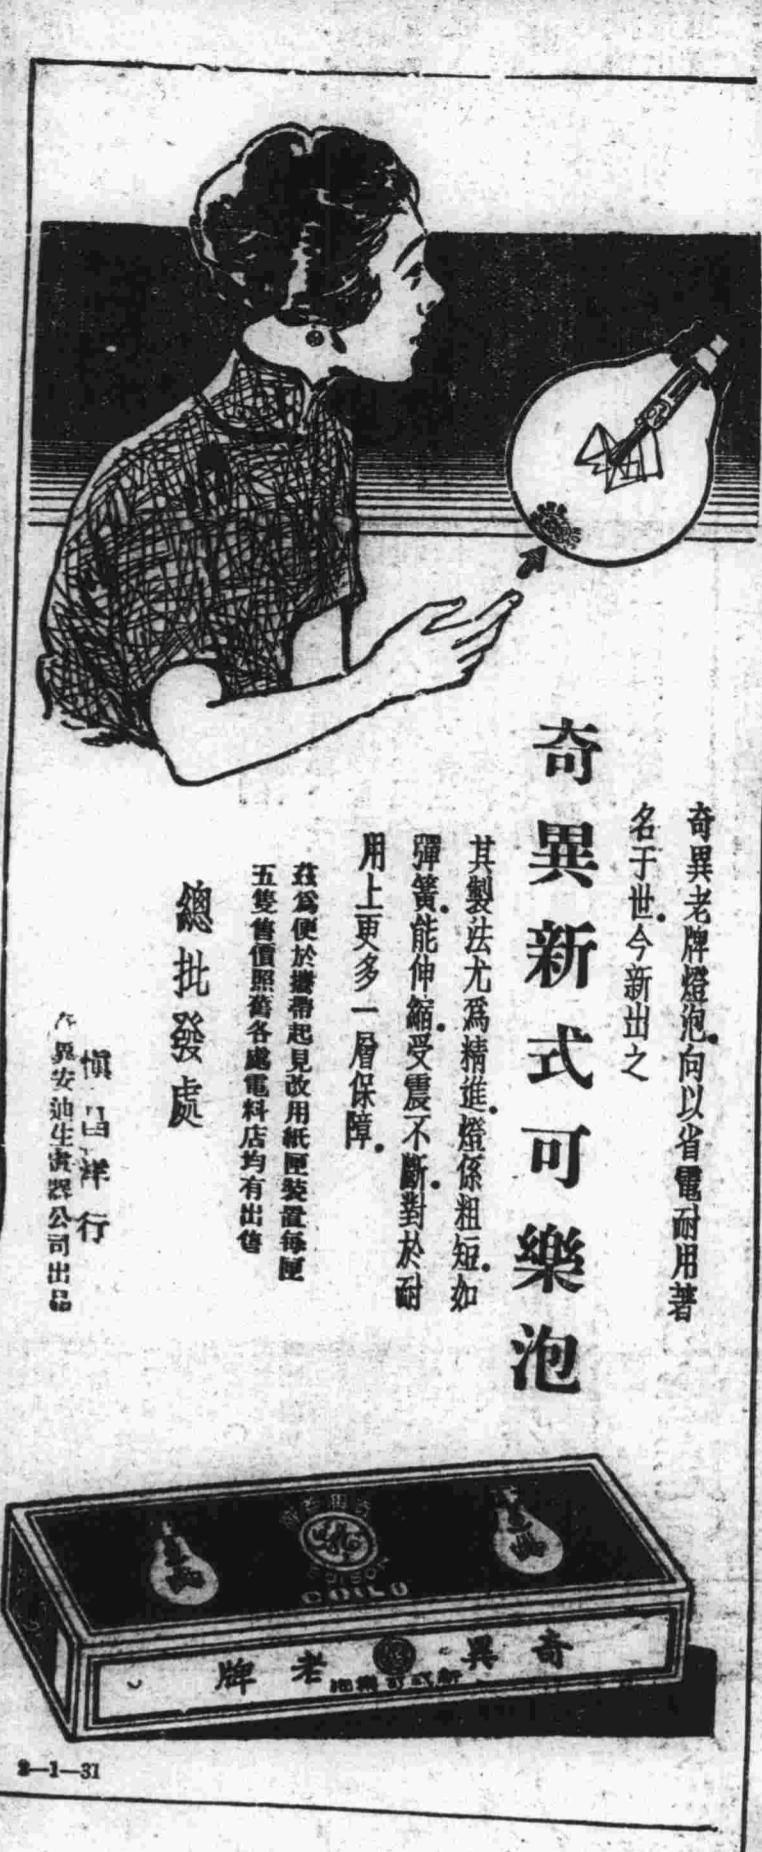 奇異老牌燈泡.向以省電耐用著
名于世.今新出之
奇異新式可樂泡
其製法尤爲精進.燈係粗短.如
彈簧.能伸縮.受震不斷.對於耐
用上更多一層保障.
茲爲便於攜帶起見改用紙匣裝置每匣
五隻售價照舊各處電料店均有出售
總批發處
愼昌洋行
異安迪生電器公司出品
EDISON
COILU
奇異老牌
新式可樂泡
2—1—31